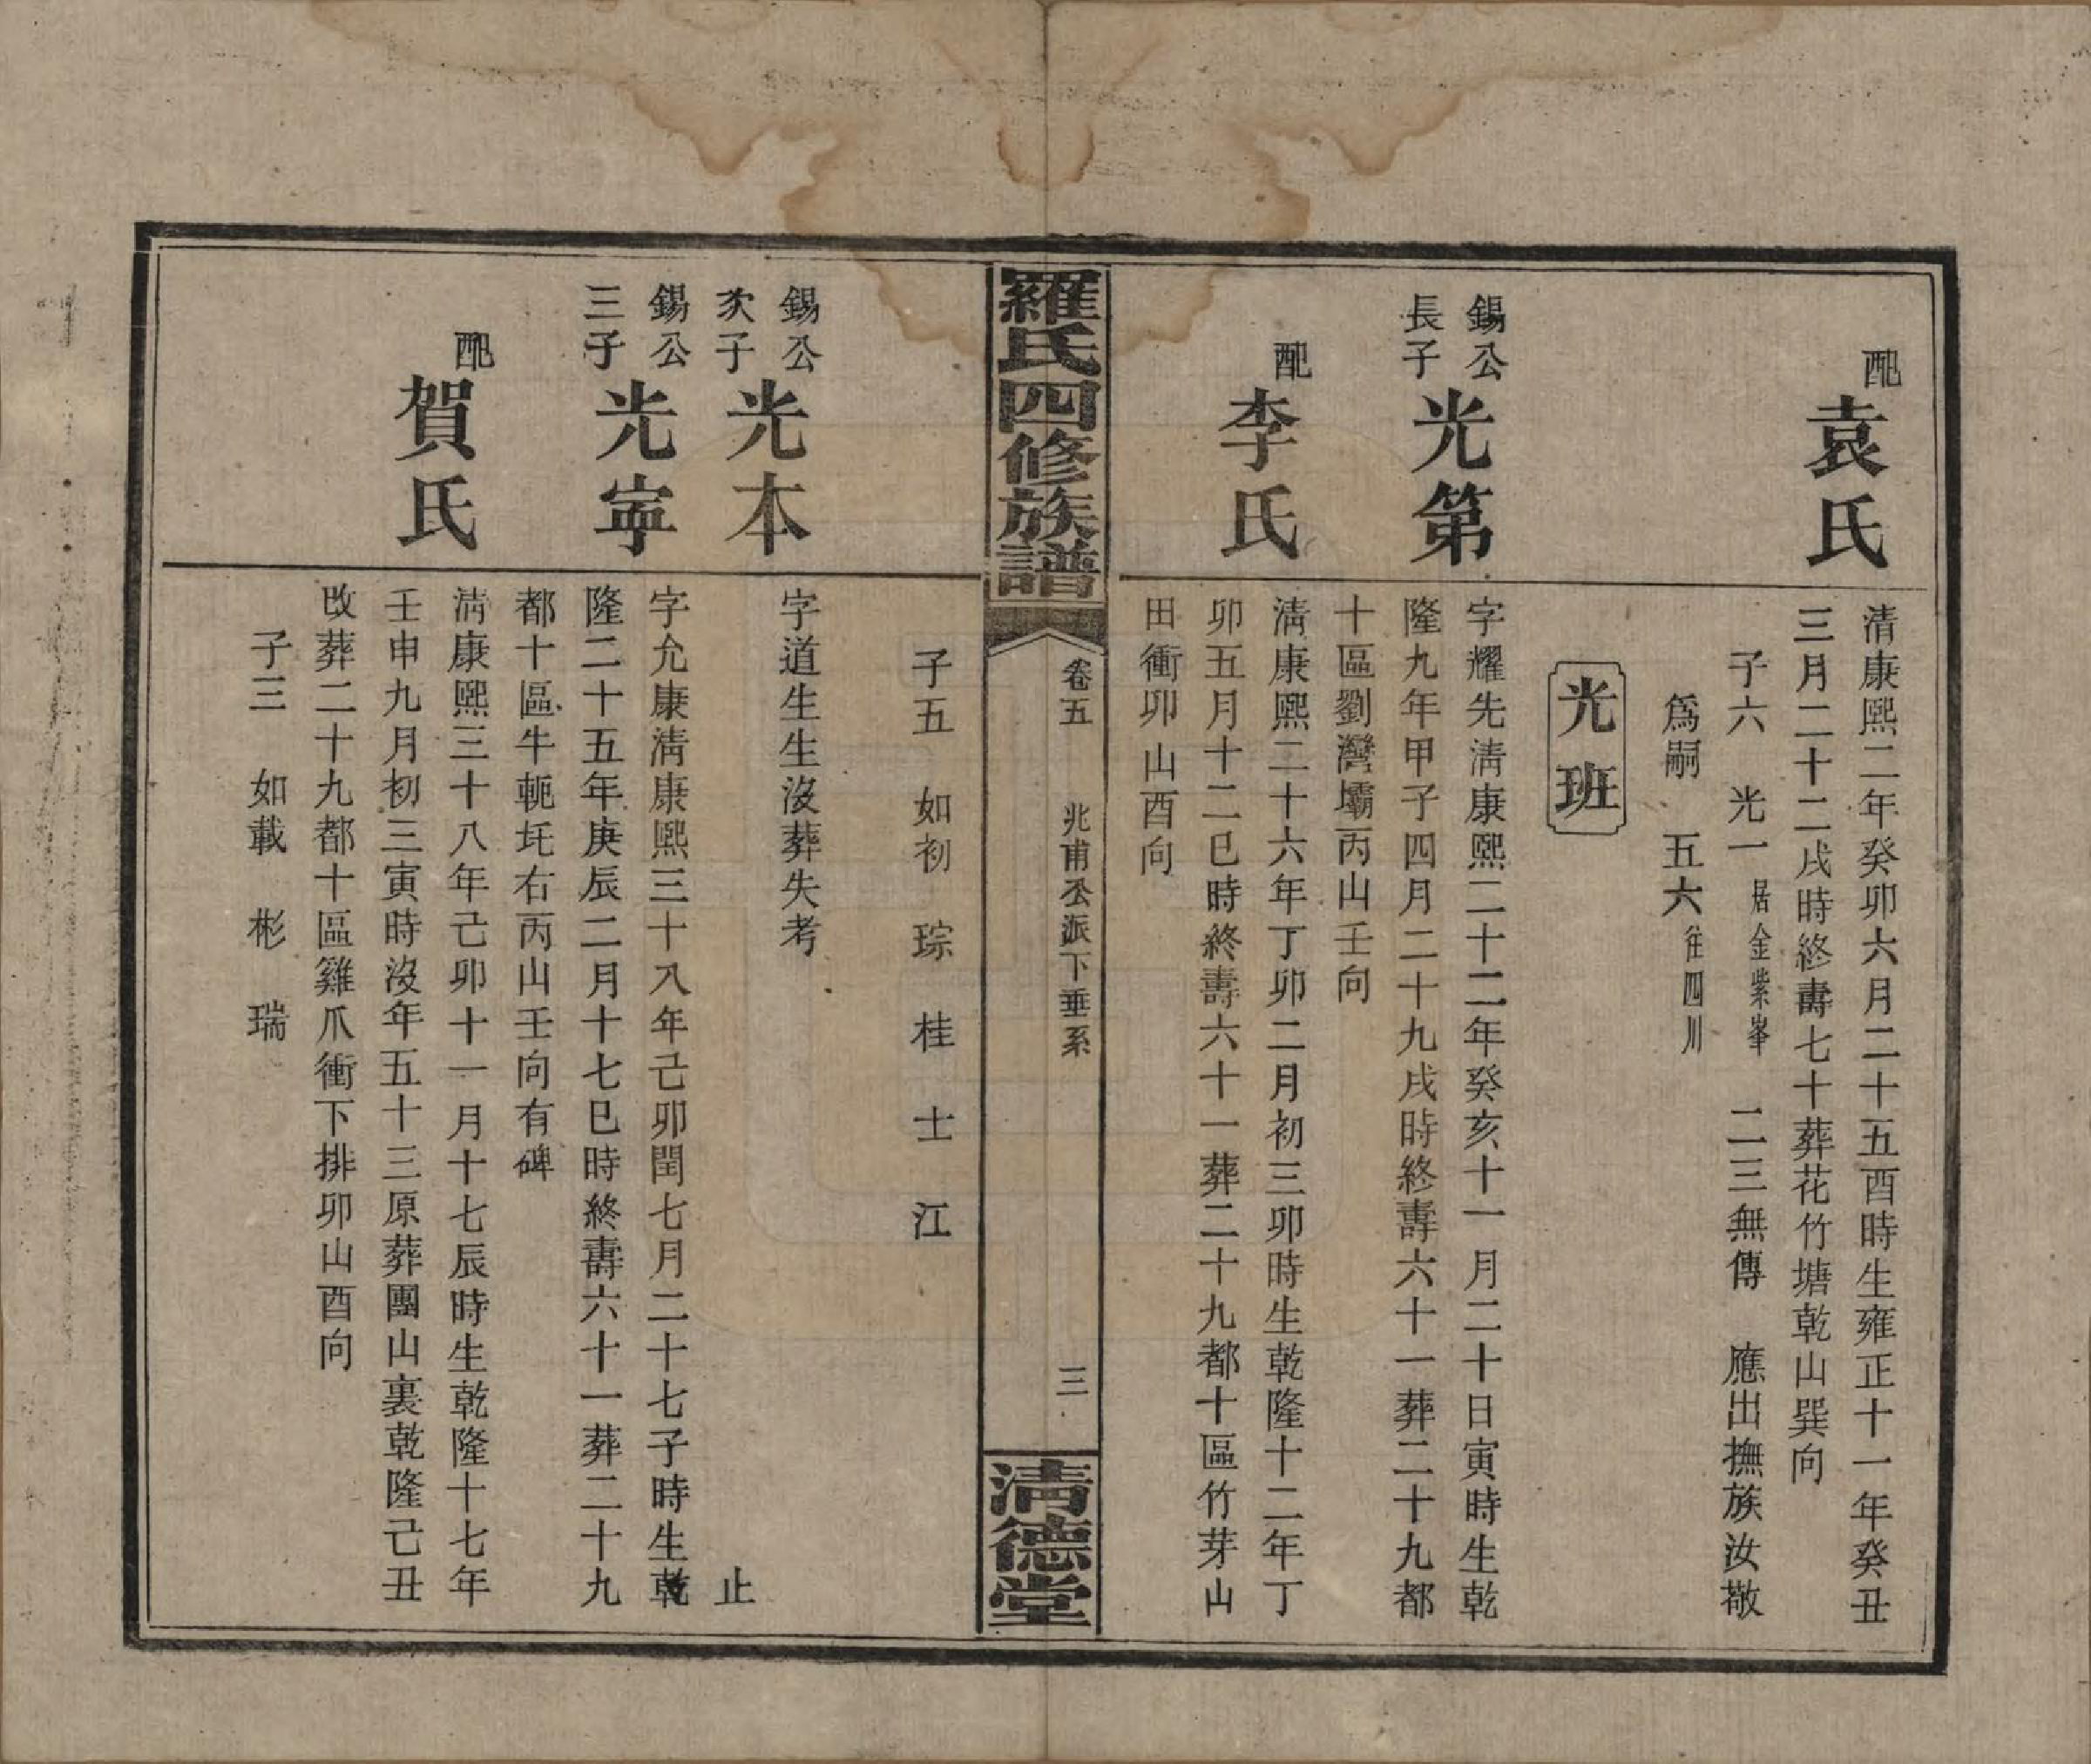 配
袁氏
清康熙二年癸卯六月二十五酉時生雍正十一年癸丑
三月二十二戌時終壽七十葬花竹塘乾山巽向
子六 光一居金紫峯 二三無傳 應出撫族汝敬
爲嗣 五六往四川
光班
錫公
長子
光第
字耀先淸康熙二十二年癸亥十一月二十日寅時生乾
隆九年甲子四月二十九戌時終壽六十一葬二十九都
十區劉灣壩丙山壬向
配
李氏
淸康熙二十六年丁卯二月初三卯時生乾隆十二年丁
卯五月十二巳時終壽六十一葬二十九都十區竹芽山
田衝卯山酉向
羅氏四修族譜
卷五 兆甫公派下垂系
三
淸德堂
子五 如初 琮 桂 士 江
錫公
次子
光本
字道生生沒葬失考
止
錫公
三子
光寜
字允康淸康熙三十八年己卯閏七月二十七子時生乾
隆二十五年庚辰二月十七巳時終壽六十一葬二十九
都十區牛軛坵右丙山壬向有碑
配
賀氏
淸康熙三十八年己卯十一月十七辰時生乾隆十七年
壬申九月初三寅時沒年五十三原葬團山裏乾隆己丑
改葬二十九都十區雞爪衝下排卯山酉向
子三 如載 彬 瑞